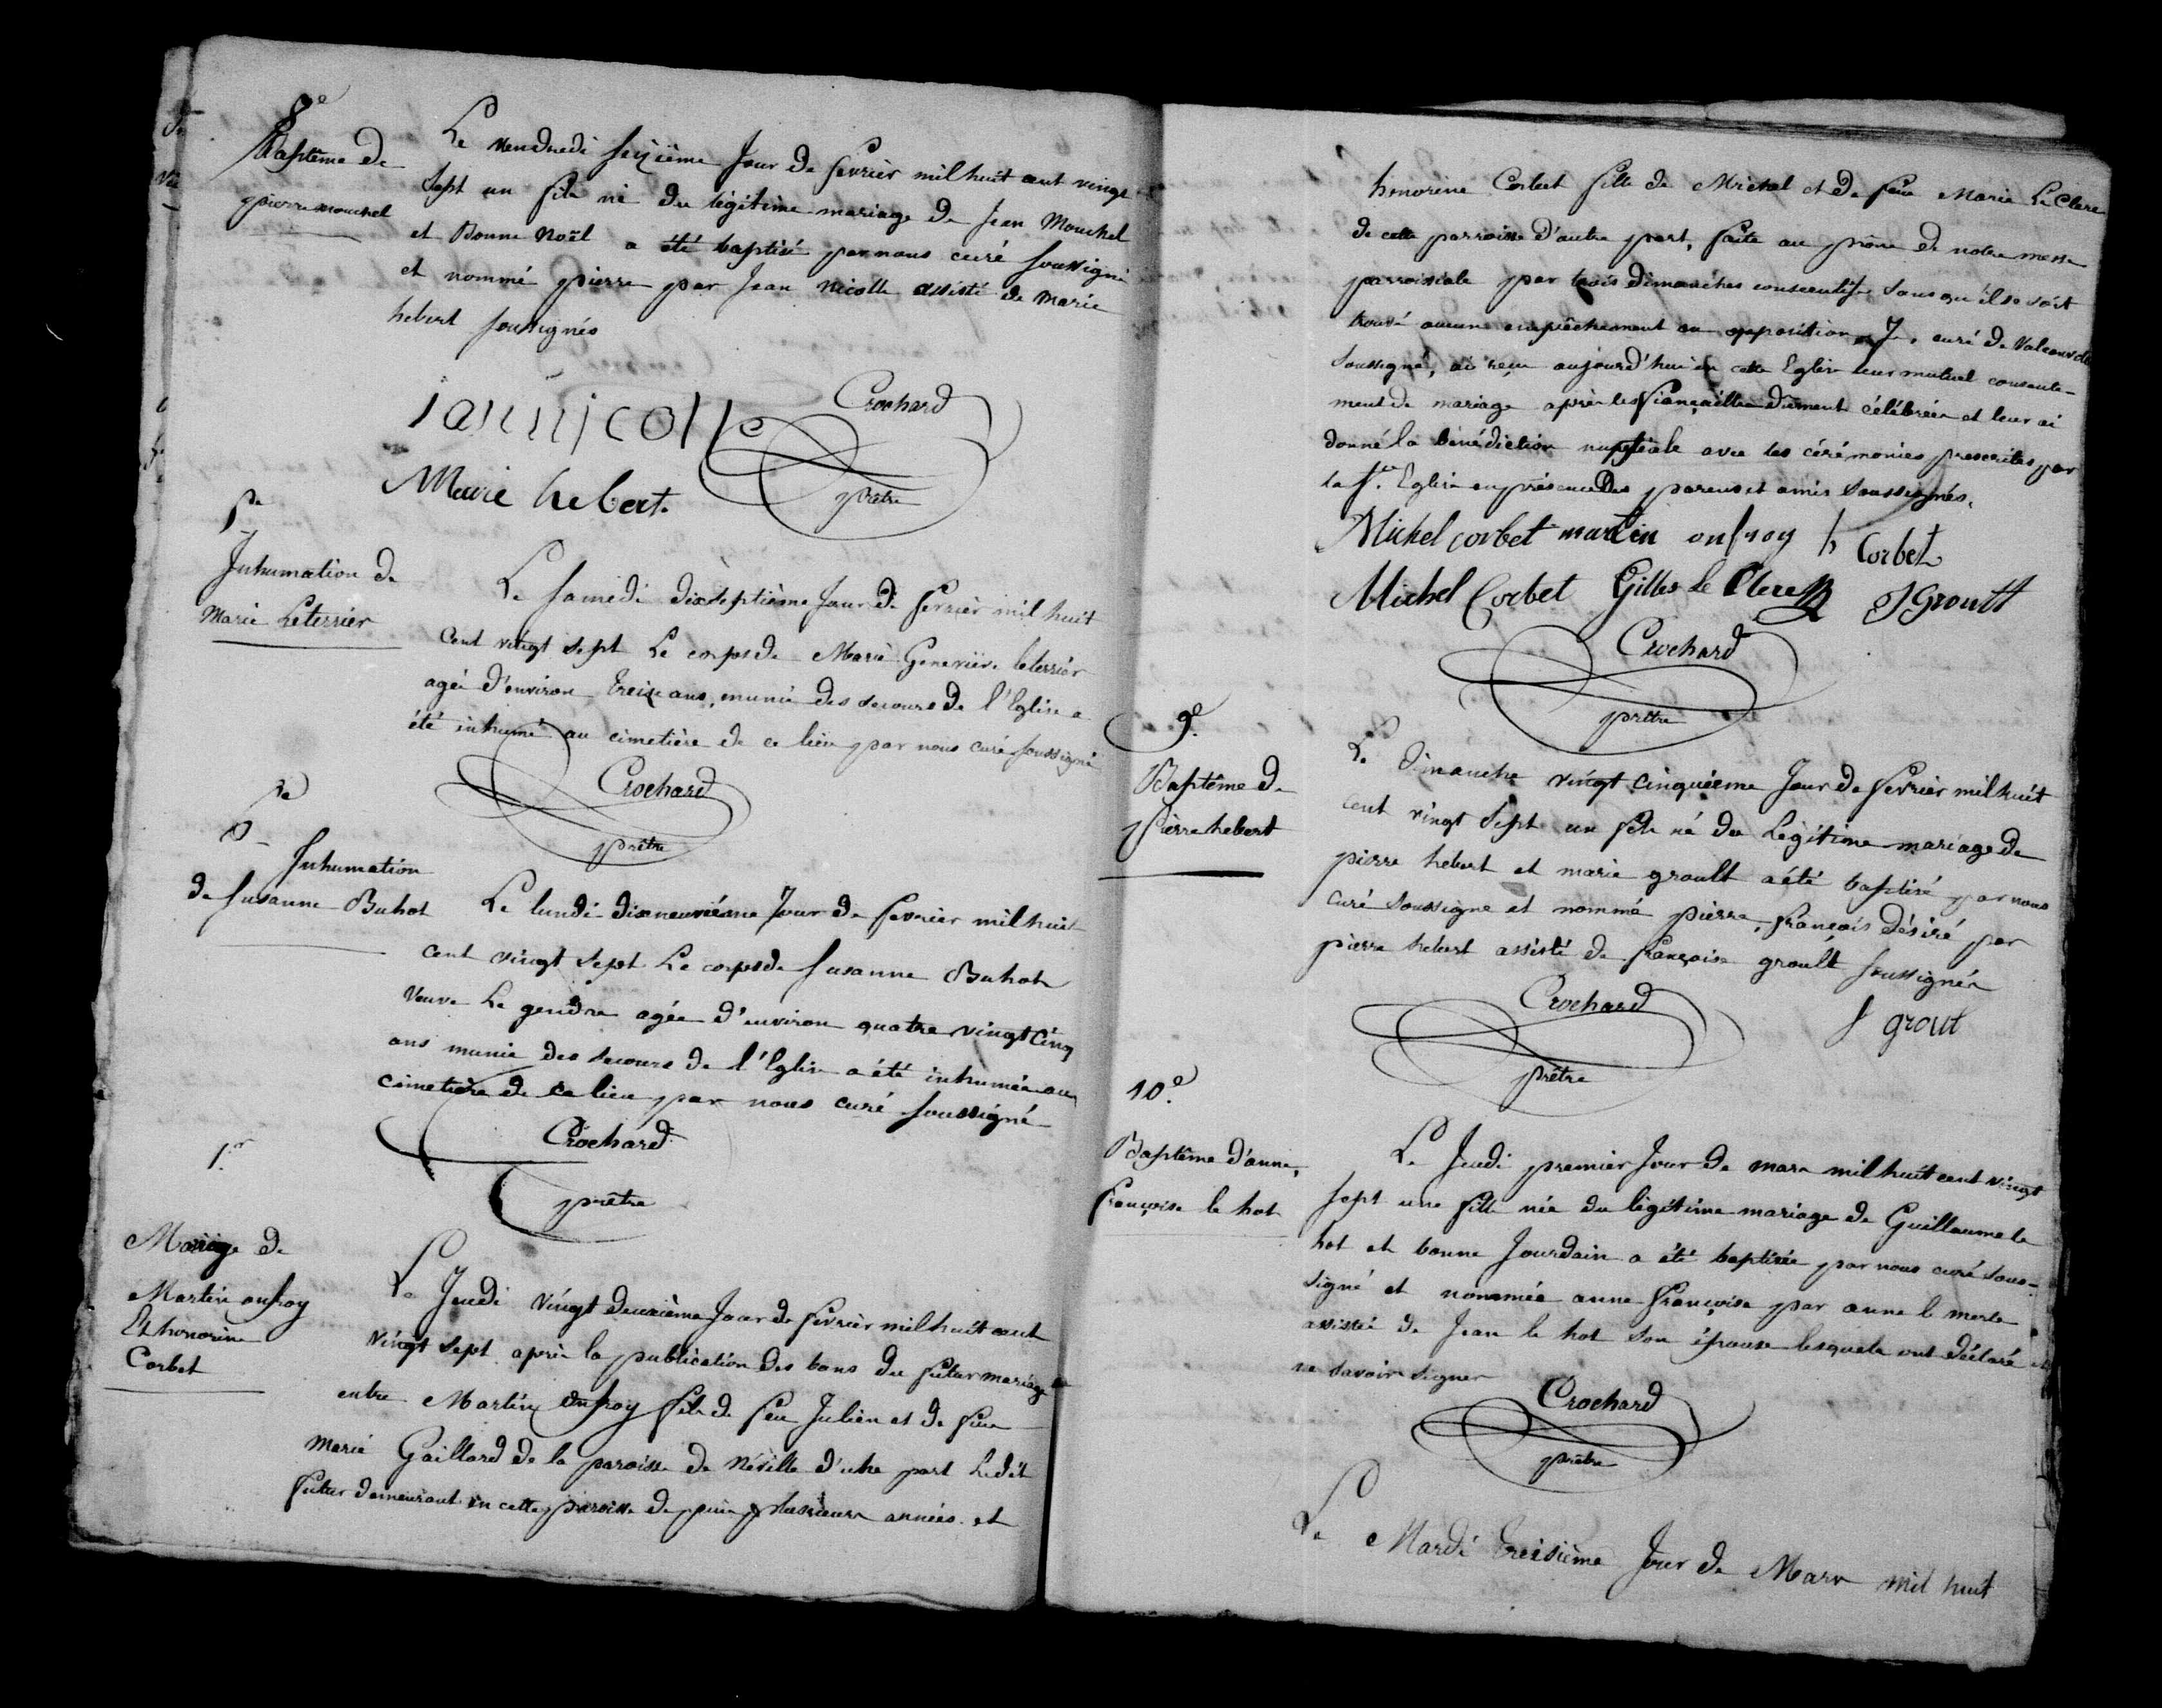 8e
Baptême de
pierre mouchel
Le vendredi seizième Jour de fevrier mil huit cent vingt
Sept un fils né du légitime mariage de Jean Mouchel
et Bonne Noël a été baptisé par nous curé soussigné
et nommé pierre par Jean Nicolle assisté de Marie
hebert soussignés
jan nicolle
Crochard
prêtre
Marie hebert
Inhumation de
Marie Leterrier
Le samedi dixseptième Jour de fevrier mil huit
Cent vingt sept Le corps de Marie Geneviève leterrier
agée d'environ treize ans, munie des secours de l'Eglise a
été inhumé au cimetière de ce lieu par nous curé soussigné
Crochard
prêtre
Inhumation
de susanne Buhot
Le lundi dixneuvième Jour de fevrier mil huit
cent vingt sept Le corps de susanne Buhot
veuve Le gendre agée d'environ quatre vingt cinq
ans munie des secours de l'Eglise a été inhumée au
cimetière de ce lieu par nous curé soussigné
Crochard
prêtre
1.er
Mariage de
Martin onfroy
Et honorine
Corbet
Le Jeudi vingt deuxième Jour de fevrier mil huit cent
vingt sept après la publication des bans du futur mariage
entre Martin onfroy fils de feu Julien et de feue
marie Gaillard de la paroisse de Néville d'une part Ledit
futur demeurant en cette paroisse depuis plusieurs années et
honorine Corbet fille de Michel et de feue Marie Le Clerc
de cette parroisse d'autre part, faite au prône de notre messe
parroissiale par trois dimanches consecutifs sans qu'il se soit
trouvé aucun empêchement ou opposition, Je, curé de Valcanville
soussigné, ai reçu aujourd'hui en cette Eglise leur mutuel consente-
ment de mariage après les fiançailles dûment célébrées et leur ai
donné la bénédiction nuptiale avec les cérémonies prescrites par
la Ste. Eglise en présence des parens et amis soussignés.
Michel corbet martin onfroy h Corbet
Michel Corbet Gilles le Clerc J Groult
Crochard
prêtre
9e.
Baptême de
pierre hebert
Le dimanche vingt cinquième Jour de fevrier mil huit
cent vingt sept un fils né du Légitime mariage de
pierre hebert et marie groult a été baptisé par nous
curé soussigné et nommé pierre, françois désiré par
pierre hebert assisté de françoise groult soussignés
Crochard
prêtre
f grout
10e.
Baptême d'anne,
françoise le hot
Le Jeudi premier Jour de mars mil huit cent vingt
sept une fille née du légitime mariage de Guillaume le
hot et bonne Jourdain a été baptisée par nous curé sous-
signé et nommée anne françoise par anne le merle
assistée de Jean le hot son épouse lesquels ont déclaré
ne savoir signer
Crochard
prêtre
Le Mardi treisième Jour de Mars mil huit